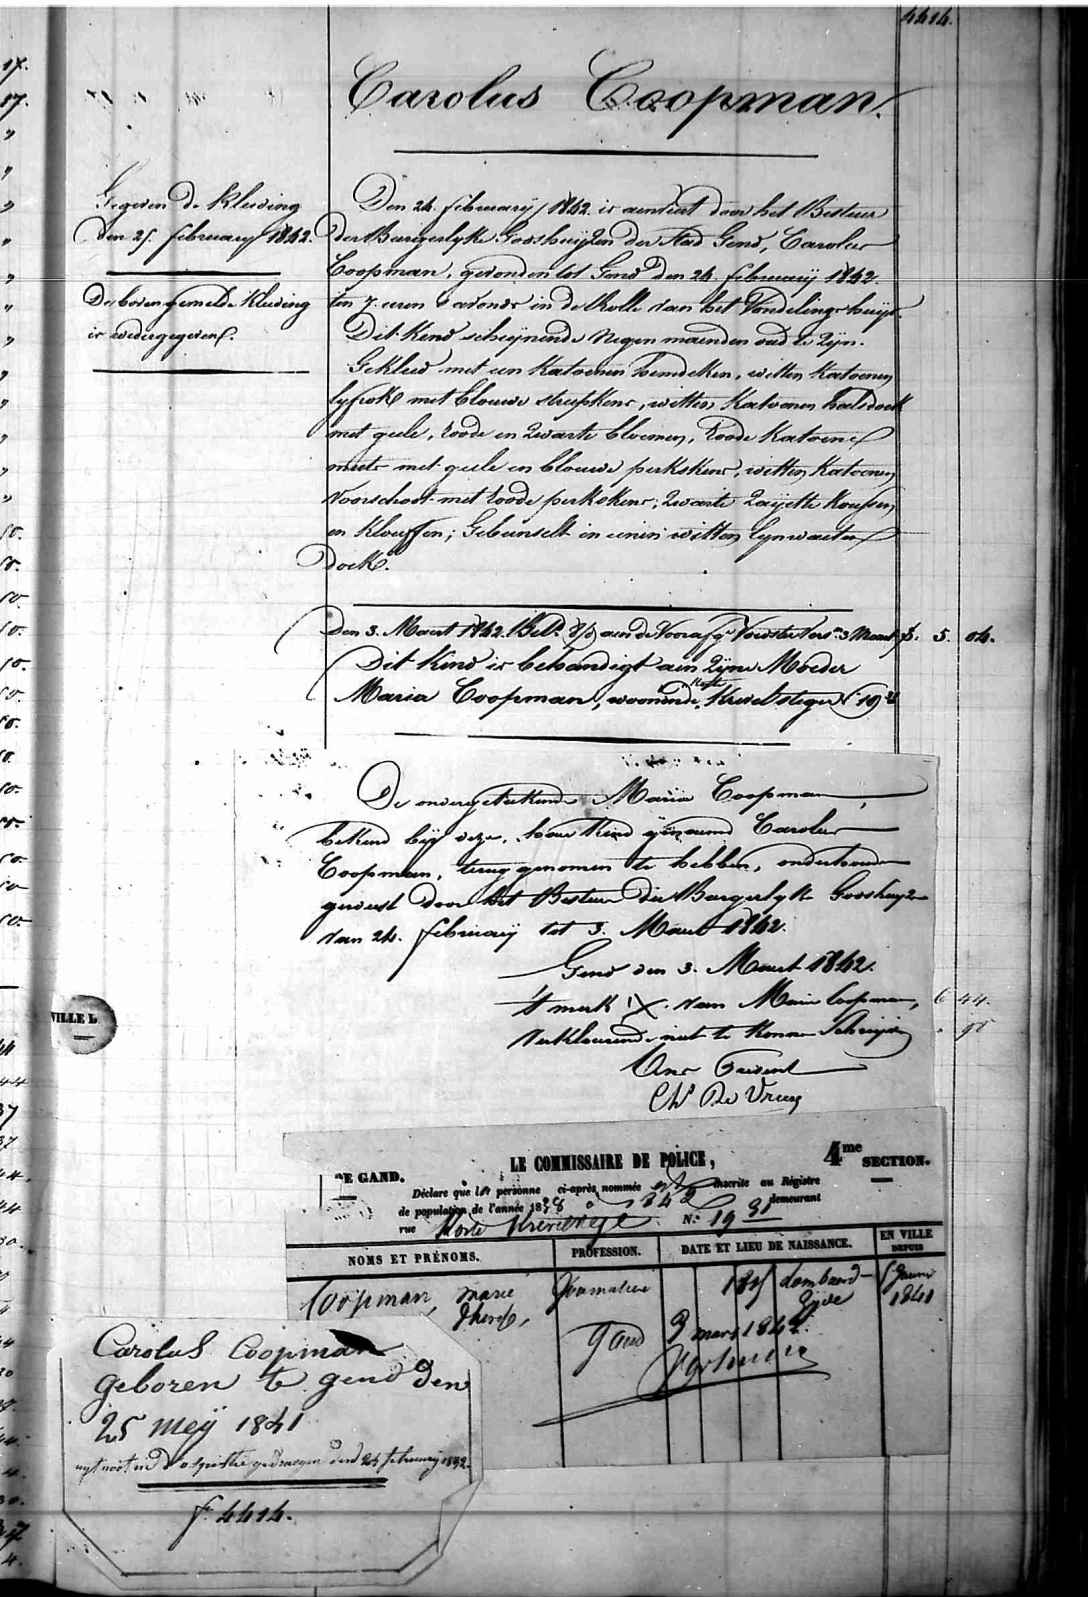 4414.
Carolus Coopman.
Gegeven de Kleeding
den 25 february 1842.
De bovengemelde Kleeding
is wedergegeven.
Den 24 february 1842. is aenveird door het Bestuer
der Burgerlyke Godshuyzen der stad Gend, Carolus
Coopman, gevonden tot Gend den 24. february 1842.
ten 7. uren 's avonds in de Rolle van het Vondelinghuys.
Dit Kind schynende negen maenden oud te zyn.
Gekleed met een Katoenen hemdeken, witten Katoenen
lyfrok met blouwe streepkens, witten Katoenen halsdoek
met geele, roode en zwarte bloemen, roode Katoene
muts met geele en blouwe perkskens, witten Katoenen
voorschoot met roode perkskens, zwarte zayette Koussen
en Kloeffen; Gebunselt in eenen witten lynwaeten
doek.
Den 3. Maert 1842. Bet. aen de Voedster 3 Maert f. 5. 04.
Dit Kind is behandigt aen zyne Moeder
Maria Coopman, woonende Korte Krevelsteger N. 19
De ondergeteekende Maria Coopman,
bekend by deze, haer Kind genaemd Carolus
Coopman, terug genomen te hebben, onderhouden
geweest door het Bestuer der Burgerlyke Godshuyzen
van 24. february tot 3. Maert 1842.
Gend den 3. Maert 1842.
't merk X van Marie Coopman, 6 44.
verklaerende niet te konnen Schryven
Ons Present
Chs De Vreese
VILLE D
DE GAND.
LE COMMISSAIRE DE POLICE,
4me SECTION.
Déclare que la personne ci-après nommée est inscrite au Régistre
de population de l'année 1838 f 342 demeurant
rue Korte Krevelstege N.° 19
NOMS ET PRÉNOMS. PROFESSION. DATE ET LIEU DE NAISSANCE. EN VILLE DEPUIS
Coopman, Marie Journalière 1815 Lombard- Janvier
Therese, Zyde 1841
Gand 3 mars 1842.
Carolus Coopman
geboren te gend den
25 meÿ 1841
f. 4414.